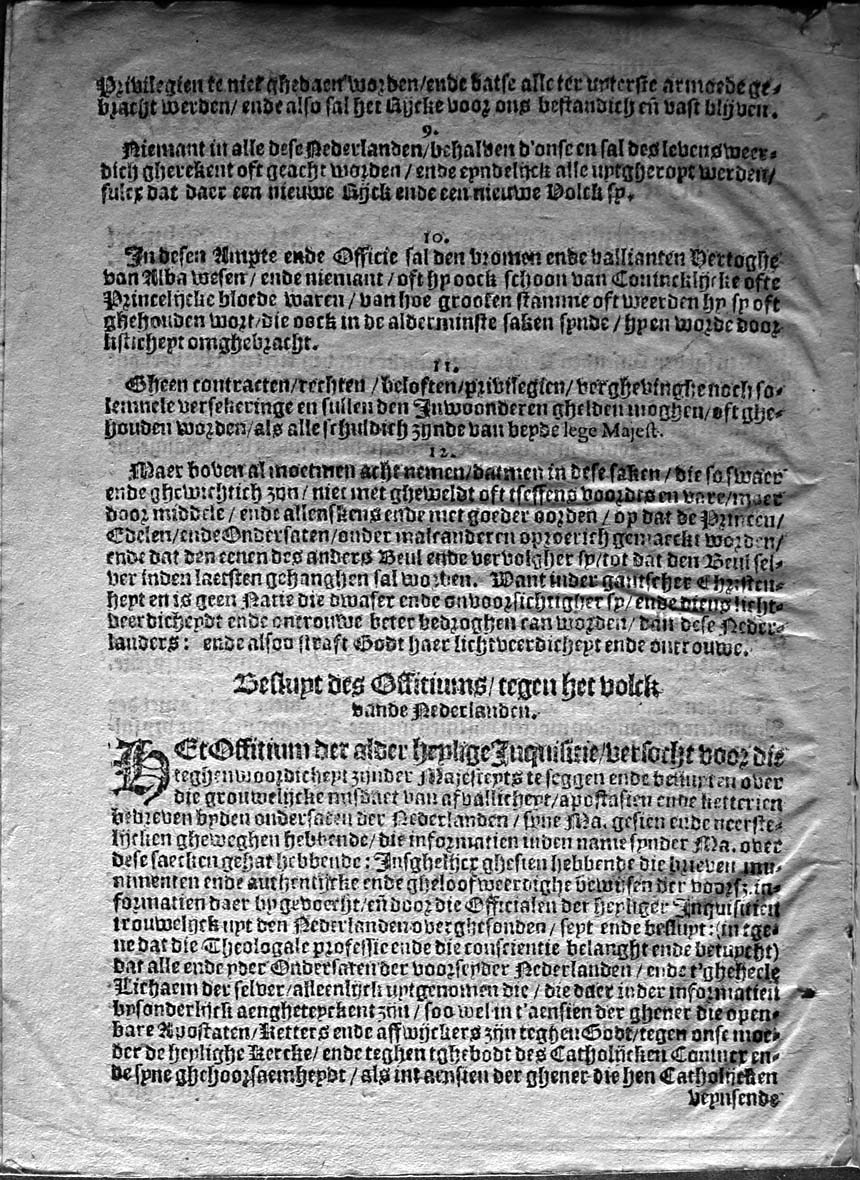 Privilegien te niet ghedaen worden/ende datse alle ter uyterste armoede ge-
bracht werden/ ende also sal het Rijcke voor ons bestandich eñ vast blijven.
9.
Niemant in alle dese Nederlanden/behalven d'onse en sal des levens weer-
dich gherekent oft geacht worden / ende eyndelijck alle uytgheropt werden/
sulcx dat daer een nieuwe Rijck ende een nieuwe Volck sy.
10.
In desen Ampte ende Officie sal den vromen ende vallianten Hertoghe
van Alba wesen / ende niemant / oft hy oock schoon van Conincklijcke ofte
Princelijcke bloede waren / van hoe grooten stamme oft weerden hy sy oft
ghehouden wort/die oock in de alderminste saken synde / hy en worde door
listicheyt omghebracht.
11.
Gheen contracten/rechten /beloften/privilegien/ verghevinghe noch so-
lemnele versekeringe en sullen den Inwoonderen ghelden moghen/oft ghe-
houden worden/als alle schuldich zijnde van beyde lege Majest.
12.
Maer boven al moetmen acht nemen/datmen in dese saken / die so swaer
ende ghewichtich zyn / niet met gheweldt oft tseffens voordts en vare/maer
door middele / ende allenskens ende met goeder oorden / op dat de Princen/
Edelen/ende Ondersaten/onder malcanderen oproerich gemaeckt worden/
ende dat den eenen des anders Beul ende vervolgher sy/tot dat den Beul sel-
ver inden laetsten gehanghen sal worden. Want inder gantscher Christen-
heyt en is geen Natie die dwaser ende onvoorsichtigher sy/ ende diens licht-
veerdicheydt ende ontrouwe beter bedroghen can worden/ dan dese Neder-
landers: ende alsoo straft Godt haer lichtveerdicheyt ende ontrouwe.
Besluyt des Offitiums/ tegen het volck
vande Nederlanden.
HEt Offitium der alder heylige Inquisitie/versocht voor die
teghenwoordicheyt zijnder Majesteyts te seggen ende besluyten over
die grouwelijcke misdaet van afvallicheyt/apostasien ende ketterien
bedreven byden ondersaten der Nederlanden / syne Ma. gesien ende neerste-
lijcken gheweghen hebbende/ die informatien inden name synder Ma. over
dese saecken gehat hebbende: Insghelijcx ghesien hebbende die brieven mu-
nimenten ende authentijcke ende gheloofweerdighe bewijsen der voorsz. in-
formatien daer by gevoecht/ eñ door die Officialen der heyliger Inquisitien
trouwelijck uyt den Nederlanden overghesonden/ seyt ende besluyt: (in tge-
ne dat die Theologale professie ende die conscientie belanght ende betuycht)
dat alle ende yder Ondersaten der voorseyder Nederlanden / ende t'gheheele
Lichaem der selver/alleenlijck uytgenomen die / die daer inder informatien
bysonderlijck aengheteyckent zijn / soo wel in t'aensien der ghener die open-
bare Apostaten/Ketters ende affwijckers zijn teghen Godt/tegen onse moe-
der de heylighe Kercke/ ende teghen tghebodt des Catholijcken Conincx en-
de syne ghehoorsaemheydt / als int aensien der ghener die hen Catholijcken
veynsende